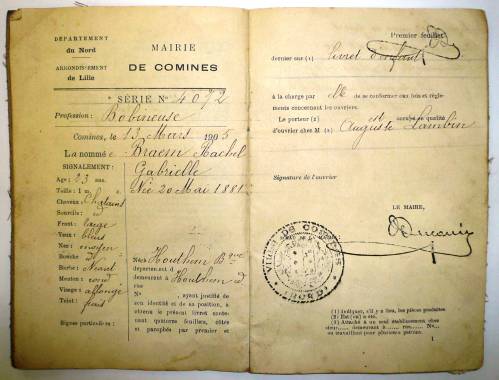 DÉPARTEMENT
du Nord
ARRONDISSEMENT
de Lille
MAIRIE
DE COMINES
SÉRIE N° 4072
Profession: Bobineuse
Comines, le 13 Mars 1905
La nommé e Braem Rachel
Gabrielle
Née 20 Mai 1881
SIGNALEMENT:
Age: 23 ans.
Taille: 1 m.
Cheveux: Chatains
Sourcils: id
Front: large
Yeux: bleus
Nez: moyen
Bouche: id
Barbe: Néant
Menton: rond
Visage: allongé
Teint: frais
Signes particuliers:
Né e Houthem Bque
département d
demeurant à Houthem d
rue
N° , ayant justifié de
son identité et de sa position, a
obtenu le présent livret conte-
nant quatorze feuillets, côtés
et paraphés par premier et
Premier feuillet
dernier sur (1) livret d'enfant
à la charge par de se conformer aux lois et règle-
ments concernant les ouvriers.
Le porteur (2) est occupé en qualité
d'ouvrier chez M Auguste Lambin
Signature de l'ouvrier
LE MAIRE,
VILLE DE COMINES
NORD
(1) Indiquer, s'il y a lieu, les pièces produites
(2) Est (ou) a été.
(3) Attaché à un seul établissement chez
demeurant à rue N°
ou travaillant pour plusieurs patrons.
1